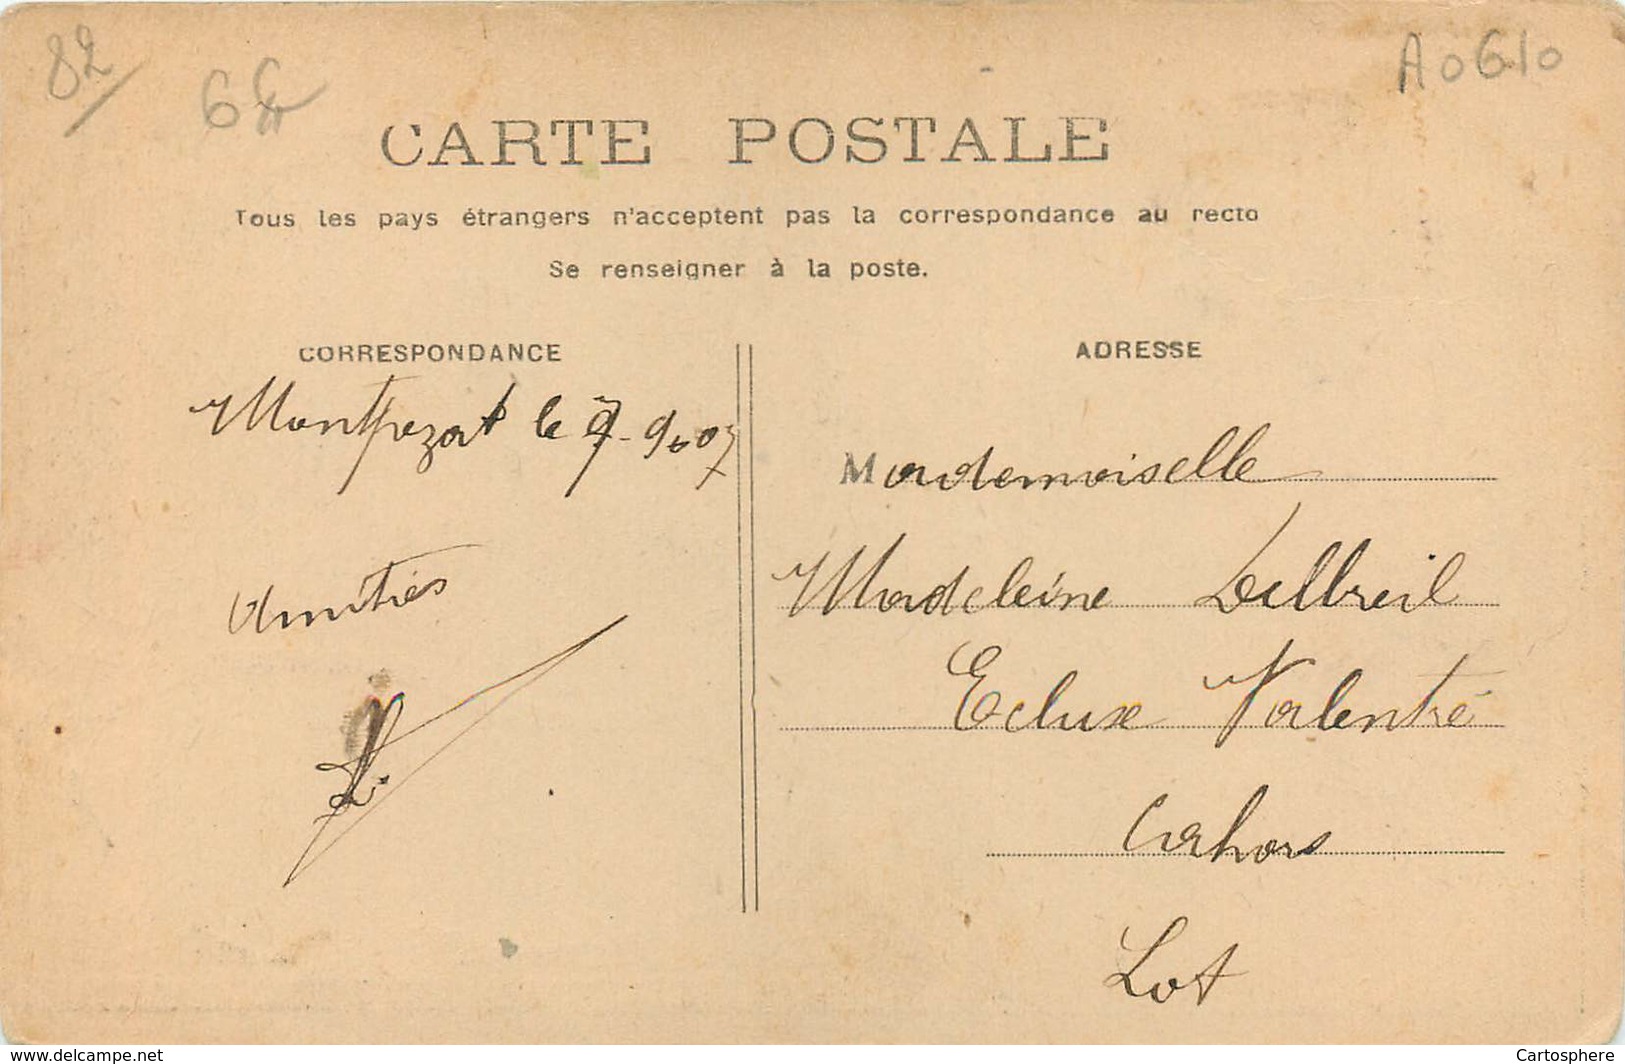 82/
6€
A0610
CARTE POSTALE
Tous les pays étrangers n'acceptent pas la correspondance au recto
Se renseigner à la poste.
CORRESPONDANCE
Montpezat le 7-9-07
Amitiés
L.
ADRESSE
Mademoiselle
Madeleine Delbreil
Ecluse Valentré
Cahors
Lot
www.delcampe.net
Cartosphere